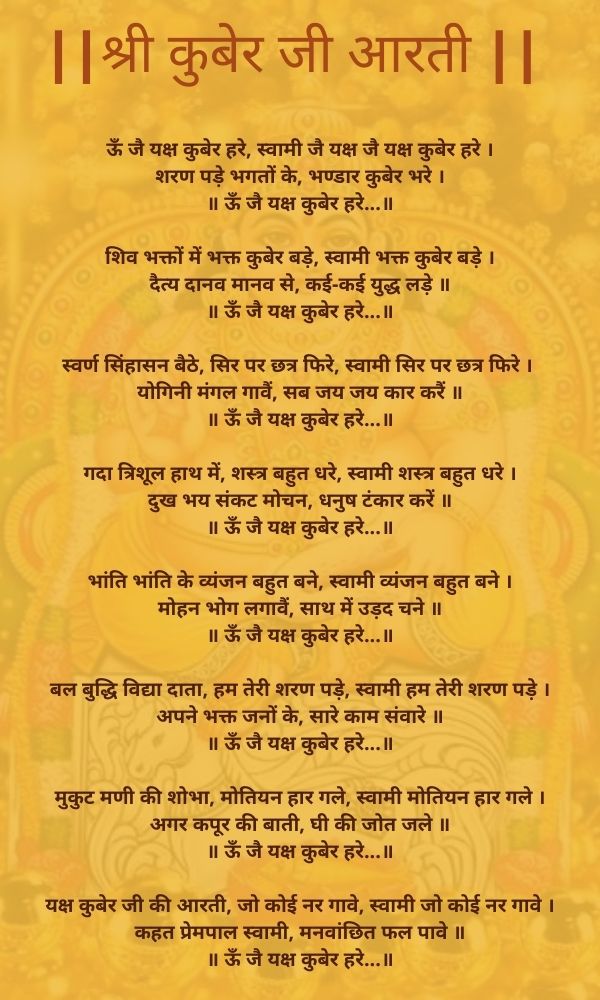 ||श्री कुबेर जी आरती ||
ऊँ जै यक्ष कुबेर हरे, स्वामी जै यक्ष जै यक्ष कुबेर हरे ।
शरण पड़े भगतों के, भण्डार कुबेर भरे ।
॥ ऊँ जै यक्ष कुबेर हरे...॥
शिव भक्तों में भक्त कुबेर बड़े, स्वामी भक्त कुबेर बड़े ।
दैत्य दानव मानव से, कई-कई युद्ध लड़े ॥
॥ ऊँ जै यक्ष कुबेर हरे...॥
स्वर्ण सिंहासन बैठे, सिर पर छत्र फिरे, स्वामी सिर पर छत्र फिरे ।
योगिनी मंगल गावैं, सब जय जय कार करैं ॥
॥ ऊँ जै यक्ष कुबेर हरे...॥
गदा त्रिशूल हाथ में, शस्त्र बहुत धरे, स्वामी शस्त्र बहुत धरे ।
दुख भय संकट मोचन, धनुष टंकार करें ॥
॥ ऊँ जै यक्ष कुबेर हरे...॥
भांति भांति के व्यंजन बहुत बने, स्वामी व्यंजन बहुत बने ।
मोहन भोग लगावैं, साथ में उड़द चने ॥
॥ ऊँ जै यक्ष कुबेर हरे...॥
बल बुद्धि विद्या दाता, हम तेरी शरण पड़े, स्वामी हम तेरी शरण पड़े ।
अपने भक्त जनों के, सारे काम संवारे ॥
॥ ऊँ जै यक्ष कुबेर हरे...॥
मुकुट मणी की शोभा, मोतियन हार गले, स्वामी मोतियन हार गले ।
अगर कपूर की बाती, घी की जोत जले ॥
॥ ऊँ जै यक्ष कुबेर हरे...॥
यक्ष कुबेर जी की आरती, जो कोई नर गावे, स्वामी जो कोई नर गावे ।
कहत प्रेमपाल स्वामी, मनवांछित फल पावे ॥
॥ ऊँ जै यक्ष कुबेर हरे...॥